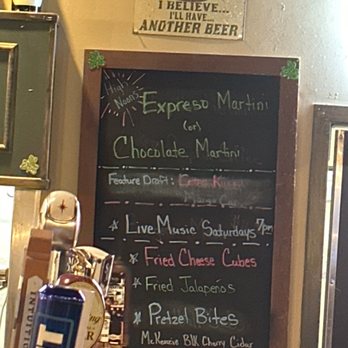 I BELIEVE...
I'LL HAVE...
ANOTHER BEER
High
Noons
Expreso Martini
(or)
Chocolate Martini
Feature Draft:
Live Music Saturdays 7pm
Fried Cheese Cubes
Fried Jalapenos
Pretzel Bites
McKenzie Blk Cherry Cidar
INTUIT